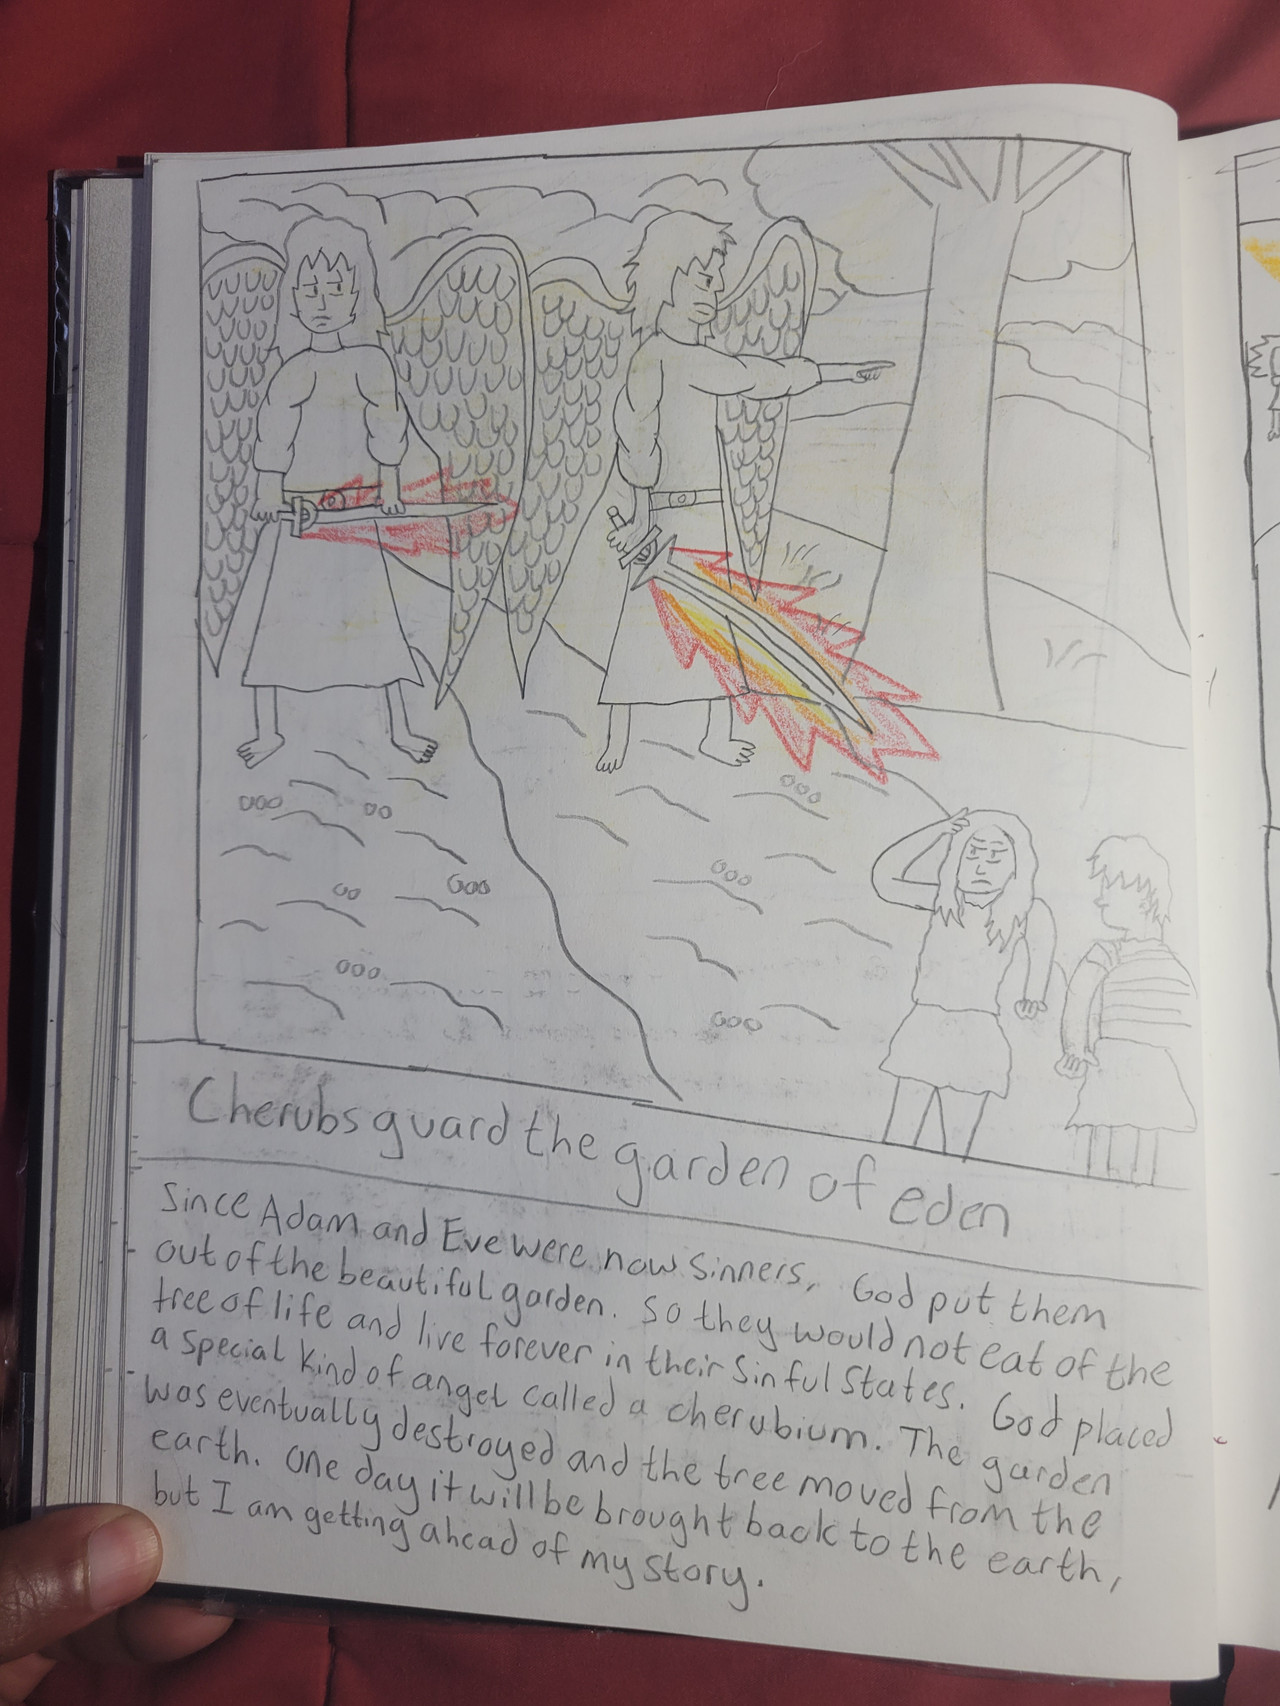 Cherubs guard the garden of eden
Since Adam and Eve were now sinners, God put them
out of the beautiful garden. So they would not eat of the
tree of life and live forever in their Sinful States. God placed
a special kind of angel called a cherubium. The garden
was eventually destroyed and the tree moved from the
earth. One day it will be brought back to the earth,
but I am getting ahead of my story.